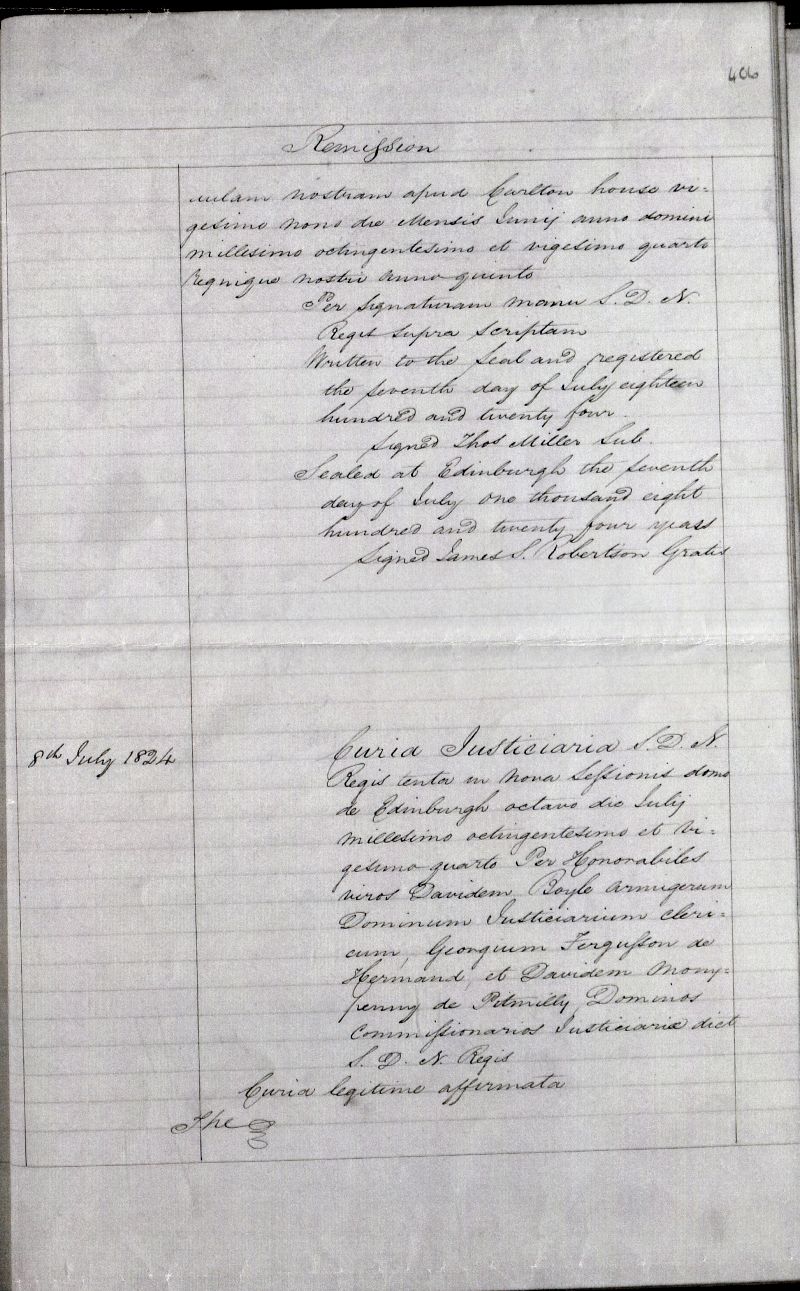 406
Remission
aulam nostram apud Carlton house vi-
gesimo nono die Mensis Junij anno domini
millesimo octingentesimo et vigesimo quarto
regnique nostri anno quinto
Per Signaturam manu S. D. N.
Regis supra scriptam
Written to the Seal and registered
the seventh day of July eighteen
hundred and twenty four.
Signed Thos Miller Sub.
Sealed at Edinburgh the seventh
day of July one thousand eight
hundred and twenty four years
Signed James S. Robertson Gratis
8th July 1824
Curia Justiciaria S. D. N.
Regis tenta in Nova Sessionis domo
de Edinburgh octavo die Julij
millesimo octingentesimo et vi-
gesimo quarto Per Honorabiles
viros Davidem Boyle Armigerum
Dominum Justiciarium Cleri-
cum, Georgium Fergusson de
Hermand, et Davidem Mony-
penny de Pitmilly Dominos
Commissionarios Justiciariæ dict
S. D. N. Regis
Curia legitime affirmata
The